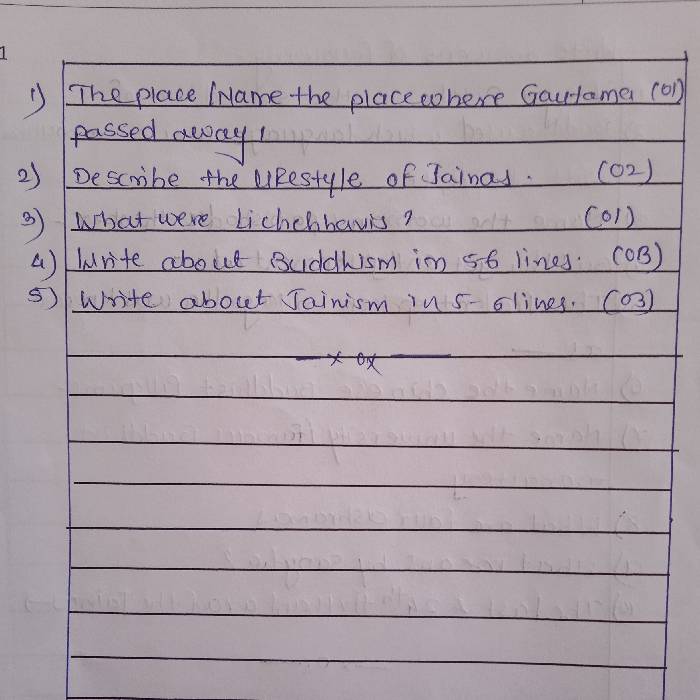 1
1) The place / Name the place where Gautama (01)
passed away!
2) Describe the lifestyle of Jainas. (02)
3) What were Lichchhavis? (01)
4) Write about Buddhism in 56 lines. (03)
5) Write about Jainism in 5-6 lines. (03)
— x ox —